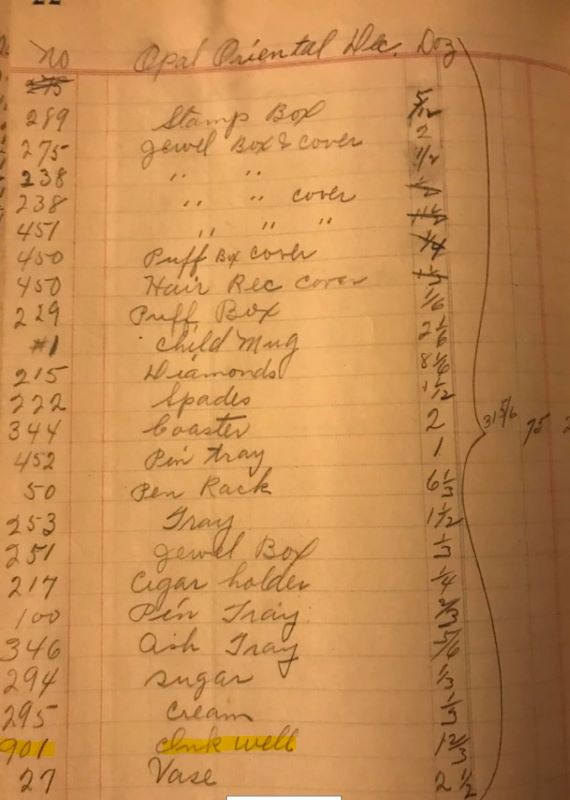 22
No Opal Oriental Dec. Doz
275
289 Stamp Box 5/12
275 Jewel Box & cover 2
238 " " 1/2
238 " " cover
451 " " "
450 Puff Box cover 1/4
450 Hair Rec cover
229 Puff Box 1/6
#1 Child Mug 2 1/6
215 Diamonds 8 1/6
222 Spades 1/12
344 Coaster 2
452 Pin tray 1
50 Pen Rack 6 1/3
253 Tray 1 1/2
251 Jewel Box 1/3
217 Cigar holder 1/4
100 Pin Tray
346 Ash Tray
294 Sugar
295 Cream
901 Ink well 1 2/3
27 Vase 2 1/2
31 5/6 75